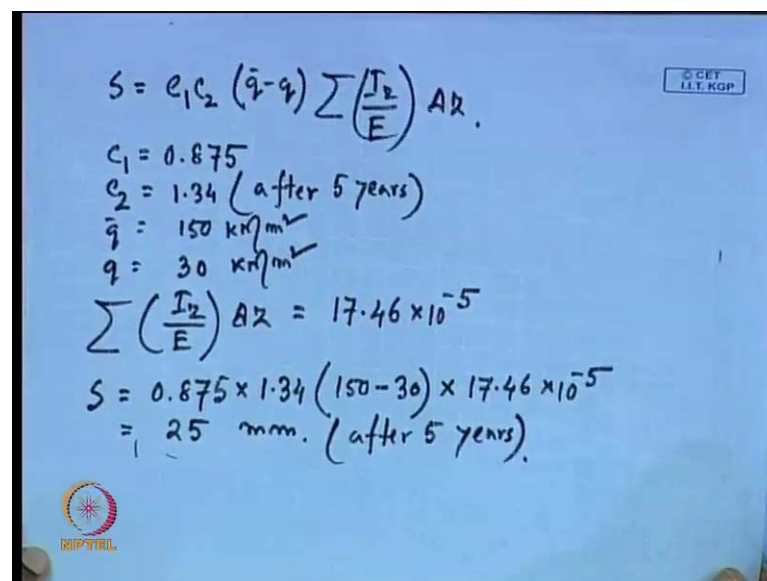 © CET
I.I.T. KGP
S = C₁C₂ (q̄-q) ∑(I_z/E) ΔZ.
C₁ = 0.875
C₂ = 1.34 (after 5 years)
q̄ = 150 kN/m²
q = 30 kN/m²
∑ (I_z/E) ΔZ = 17.46 × 10⁻⁵
S = 0.875 × 1.34 (150-30) × 17.46 × 10⁻⁵
= 25 mm. (after 5 years).
NPTEL